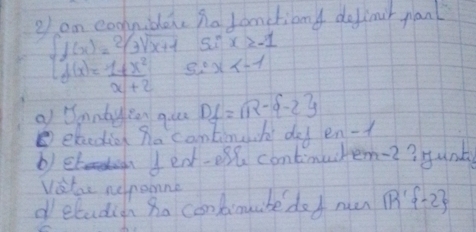 2) on considère la fonction f définit par
{ f(x) = 2√x+1 Si x ≥ -1
{ f(x) = 1+x² / x+2 Si x < -1
a) que Df = R - {-2}
c) etudier la continuité def en -1
b) f est-elle continuit em -2 ?
Votre reponne
d) etudier la continuité de f R \ {-2}